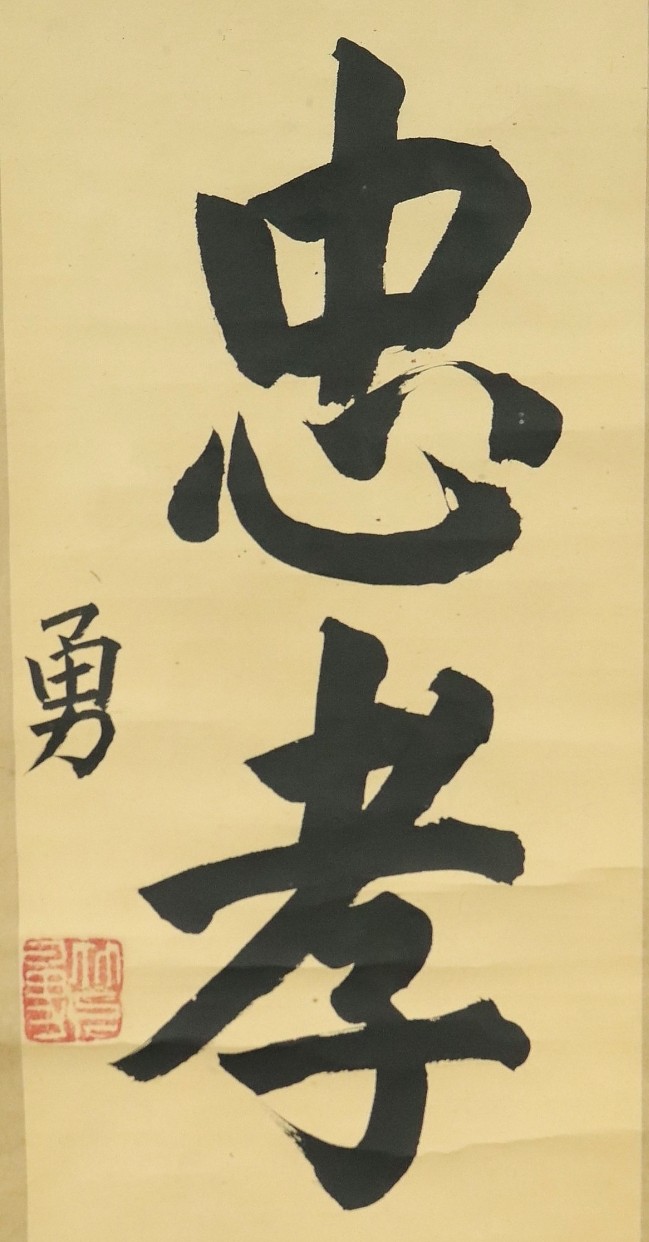 忠孝
勇